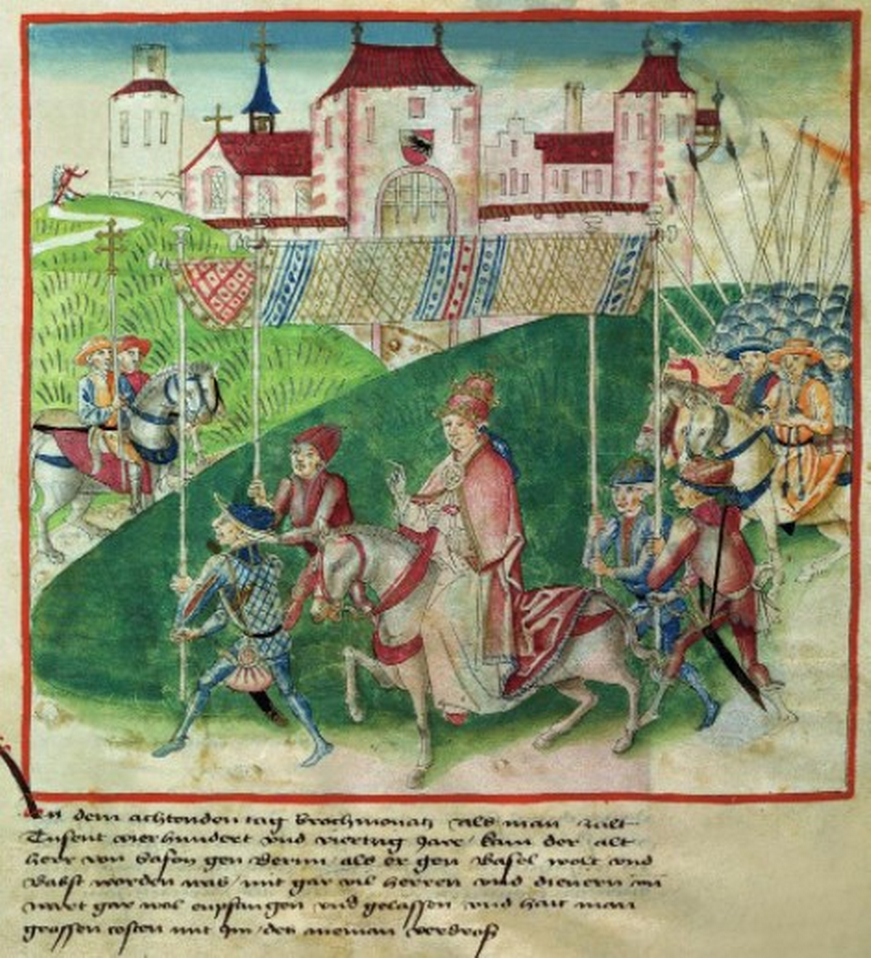 An dem achtenden tag brachmonatz als man zalt
Tusent vierhundert vnd viertzig Jare / kam der alt
herr von Safoy gen Bernn als er gen Basel wolt vnd
Babst worden was / mit gar vil herren vnd dienern vn
wart gar wol enpfangen vnd gelassen vnd hatt man
grossen costen mit Im / des nieman verdroß